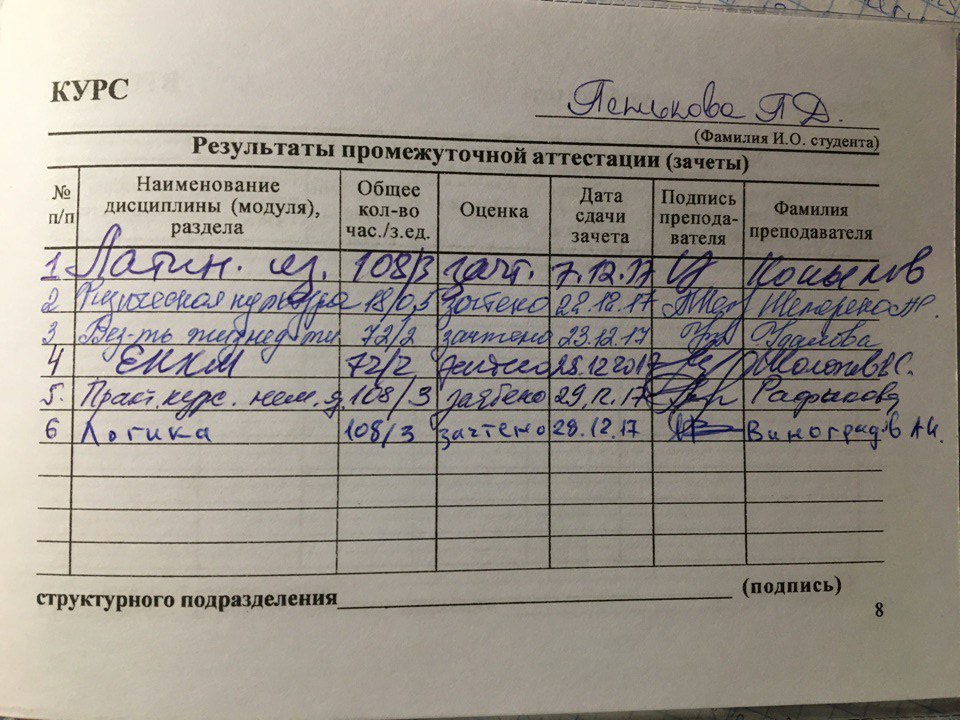 КУРС
Пенькова П Д.
(Фамилия И.О. студента)
Результаты промежуточной аттестации (зачеты)
№ п/п Наименование дисциплины (модуля), раздела Общее кол-во час./з.ед. Оценка Дата сдачи зачета Подпись препода-вателя Фамилия преподавателя
1 Латин. яз. 108/3 зачт. 7.12.17 Копылов
2 Физическая культура 18/0,5 зачтено 22.12.17
3 Без-ть жизнед-ти 72/2 зачтено 23.12.17 Удалова
4 ЕНКМ 72/2 зачтено 25.12.2017
5. Практ. курс. нем. я. 108/3 зачтено 29.12.17 Рафикова
6 Логика 108/3 зачтено 28.12.17 Виноградов А.И.
структурного подразделения (подпись)
8